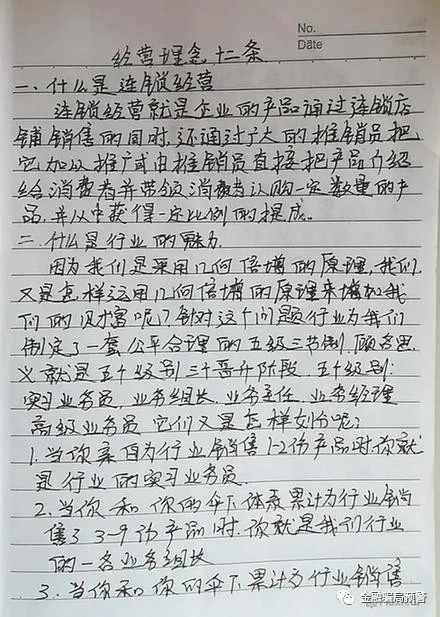 No.
Date
经营理念十二条
一、什么是连锁经营
连锁经营就是企业的产品通过连锁店
铺销售的同时,还通过广大的推销员把
它加以推广或由推销员直接把产品介绍
给消费者并带领消费者认购一定数量的产
品,并从中获得一定比例的提成。
二、什么是行业的魅力
因为我们是采用几何倍增的原理,我们
又是怎样运用几何倍增的原理来增加我
们的财富呢?针对这个问题行业为我们
制定了一套公平合理的五级三节制,顾名思
义就是五个级别三个晋升阶段,五个级别:
实习业务员,业务组长,业务主任,业务经理
高级业务员 它们又是怎样划分呢;
1.当你累计为行业销售1-2份产品时,你就
是行业的实习业务员.
2.当你和你的伞下体系累计为行业销
售了3-9份产品时,你就是我们行业
的一名业务组长
3.当你和你的伞下累计为行业销售
金融骗局预警